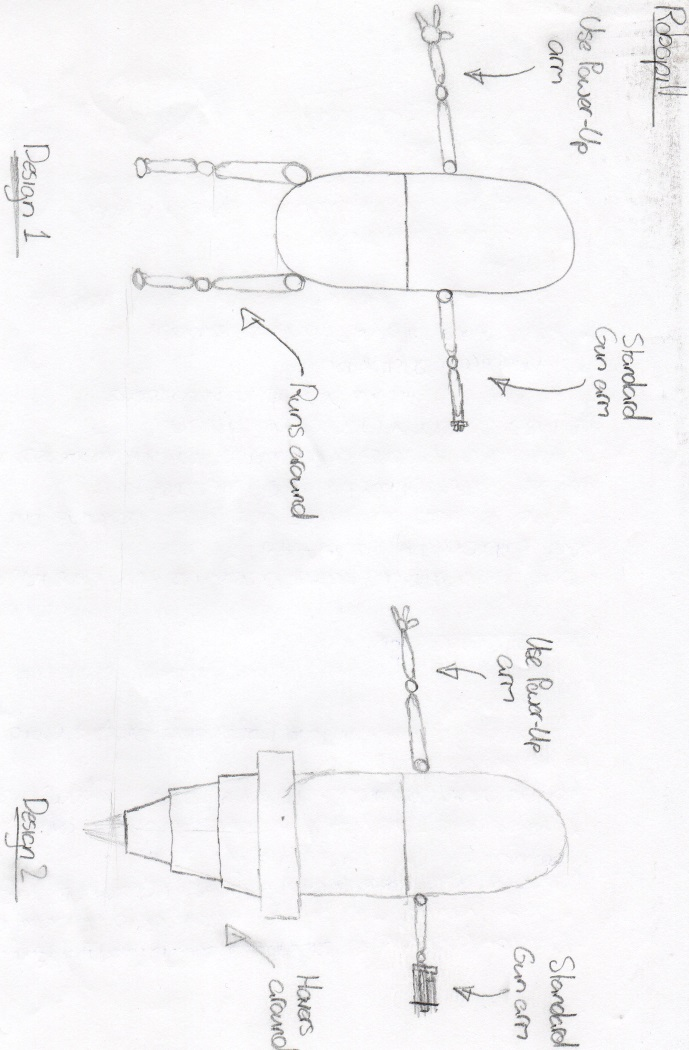 Robopill
Use Power-Up
arm
Standard
Gun arm
Runs around
Design 1
Use Power-Up
arm
Standard
Gun arm
Hovers
around
Design 2